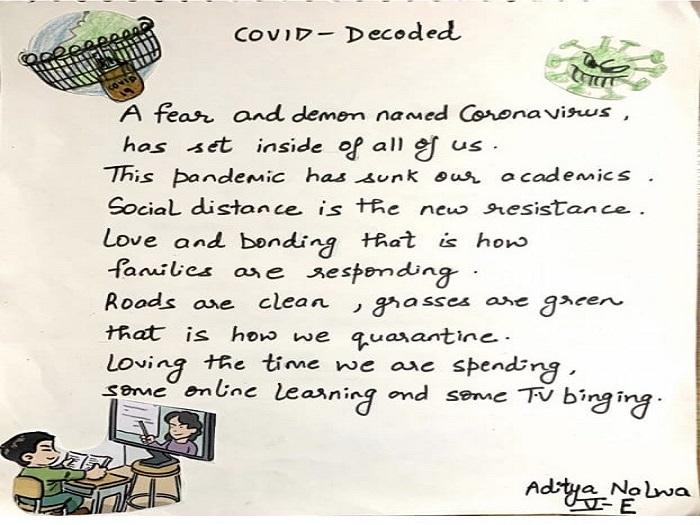 COVID - Decoded
COVID
19
A fear and demon named Coronavirus,
has set inside of all of us.
This pandemic has sunk our academics.
Social distance is the new resistance.
Love and bonding that is how
families are responding.
Roads are clean, grasses are green
that is how we quarantine.
Loving the time we are spending,
some online learning and some T.V binging.
Aditya Nalwa
V-E